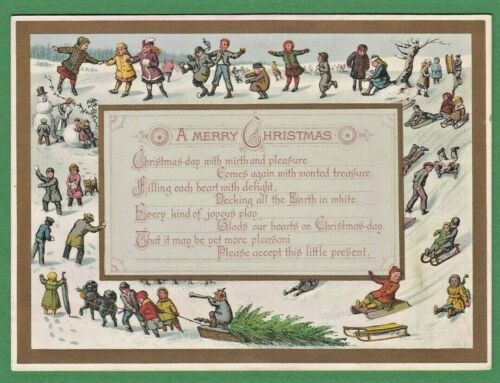 A MERRY CHRISTMAS
Christmas-day with mirth and pleasure
Comes again with wonted treasure
Filling each heart with delight,
Decking all the Earth in white.
Every kind of joyous play
Glads our hearts on Christmas-day.
That it may be yet more pleasant
Please accept this little present.